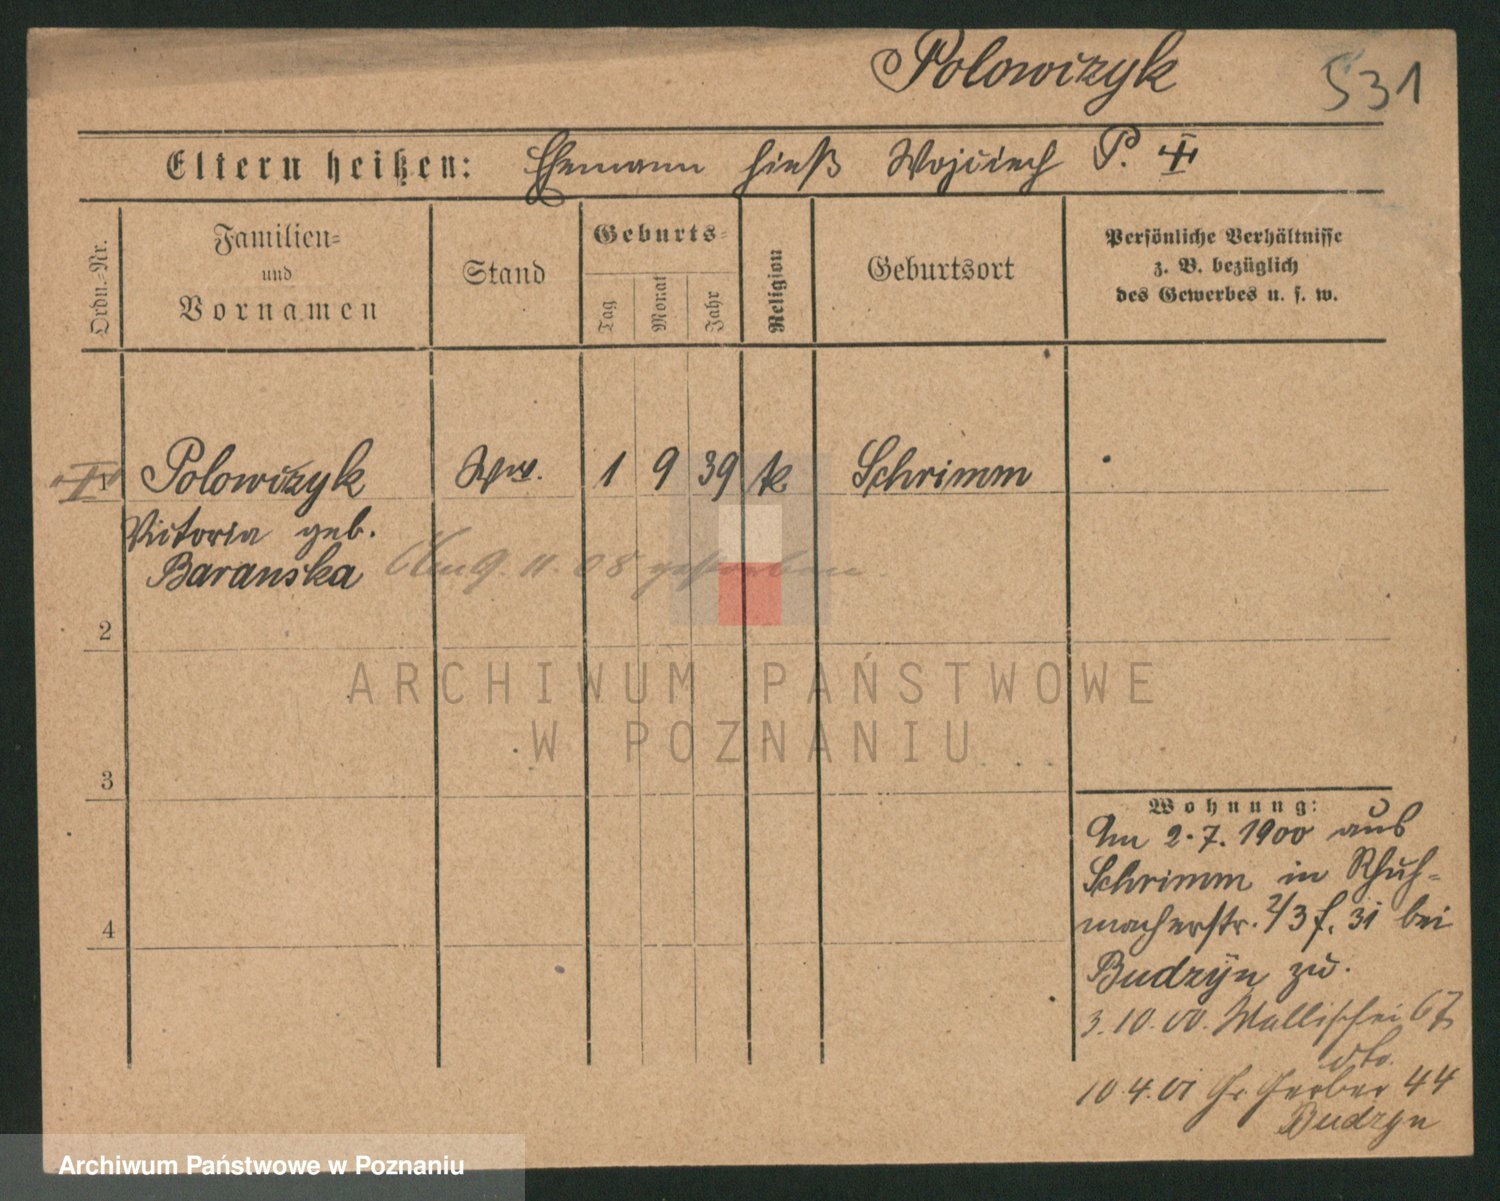 Polowczyk 531
Eltern heißen: Ehemann hieß Wojciech P. ‡
Ordn.-Nr.
Familien- und Vornamen
Stand
Geburts-
Tag
Monat
Jahr
Religion
Geburtsort
Persönliche Verhältnisse
z. B. bezüglich
des Gewerbes u. s. w.
1 Polowczyk Ww. 1 9 39 k. Schrimm
Victoria geb.
Baranska Am 9. 11. 08 gestorben.
2
3
4
Wohnung:
Am 2.7.1900 aus
Schrimm in Schuh-
macherstr. 2/3 f. 31 bei
Budzyn zu.
3.10.00. Wallischei 67
dto.
10.4.01 Gr. Gerber 44
Budzyn
ARCHIWUM PAŃSTWOWE
W POZNANIU
Archiwum Państwowe w Poznaniu